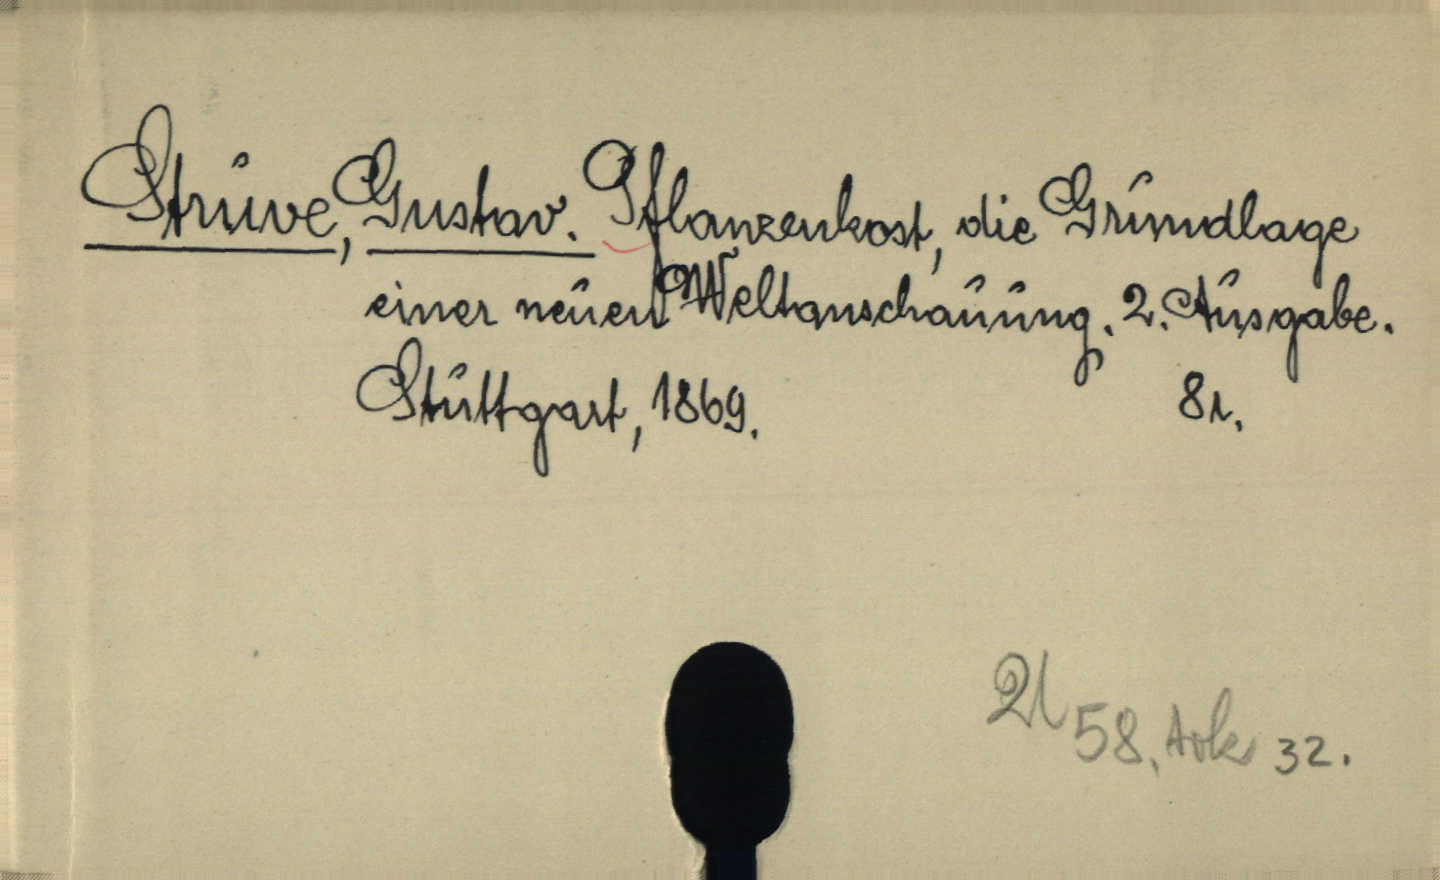 Struve, Gustav. Pflanzenkost, die Grundlage
einer neuen Weltanschauung. 2. Ausgabe.
Stuttgart, 1869. 8r.
58. 32.